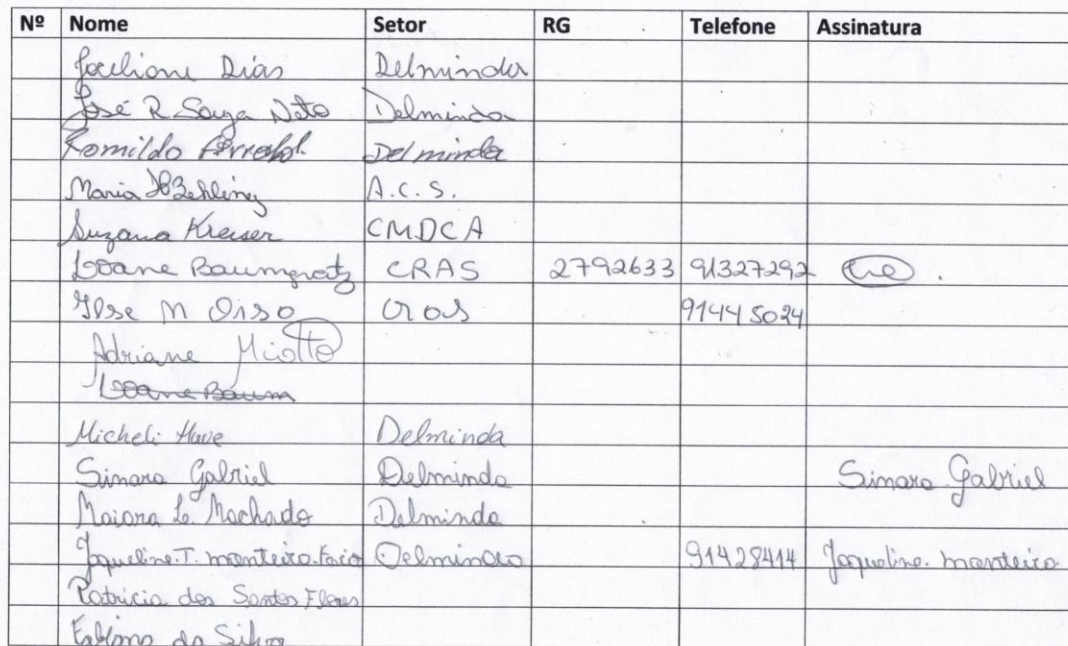 Nº Nome Setor RG Telefone Assinatura
Jocilione Dias Delminda
José R Souza Neto Delminda
Romildo Delminda
Maria A.C.S.
Suzana Kreuser CMDCA
Loane Baumgratz CRAS 2792633 91327292
Ilse M Orso Cras 91445024
Adriane Miotto
Loane Baum
Micheli Delminda
Simara Gabriel Delminda Simara Gabriel
Maiara L. Machado Delminda
Jaqueline.T. monteiro. Delminda 91428414 Jaqueline. monteiro
Patrícia dos Santos Flores
Fabiana da Silva